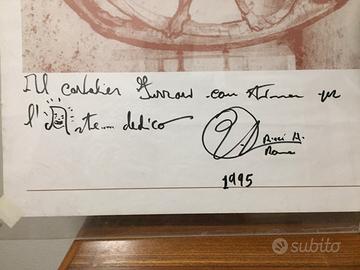 Al cavalier Ferraro con stima per
l'Arte... dedico
Ricci M.
Roma
1995
subito